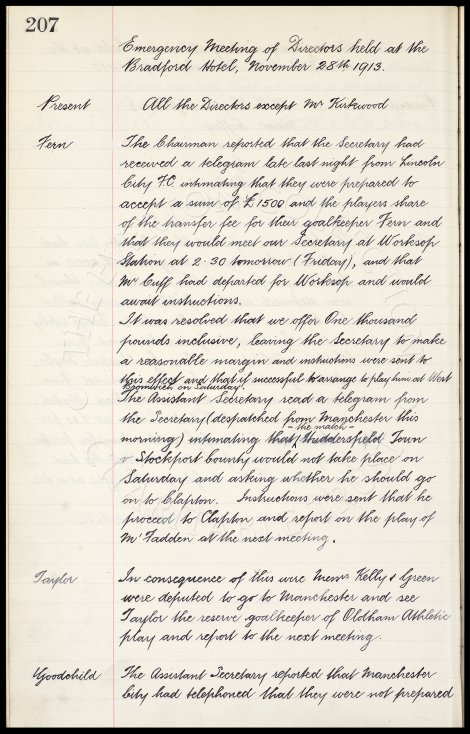 207
Emergency Meeting of Directors held at the
Bradford Hotel, November 28th 1913.
Present All the Directors except Mr Kirkwood
Fern The Chairman reported that the Secretary had
received a telegram late last night from Lincoln
City F.C. intimating that they were prepared to
accept a sum of £1500 and the players share
of the transfer fee for their goalkeeper Fern and
that they would meet our Secretary at Worksop
Station at 2-30 tomorrow (Friday), and that
Mr Cuff had departed for Worksop and would
await instructions.
It was resolved that we offer One thousand
pounds inclusive, leaving the Secretary to make
a reasonable margin and instructions were sent to
this effect and that if successful to arrange to play him at West
Bromwich on Saturday.
The Assistant Secretary read a telegram from
the Secretary (despatched from Manchester this
- the match -
morning) intimating that Huddersfield Town
v Stockport County would not take place on
Saturday and asking whether he should go
on to Clapton. Instructions were sent that he
proceed to Clapton and report on the play of
McFadden at the next meeting.
Taylor In consequence of this wire Messrs Kelly & Green
were deputed to go to Manchester and see
Taylor the reserve goalkeeper of Oldham Athletic
play and report to the next meeting.
Goodchild The Assistant Secretary reported that Manchester
City had telephoned that they were not prepared